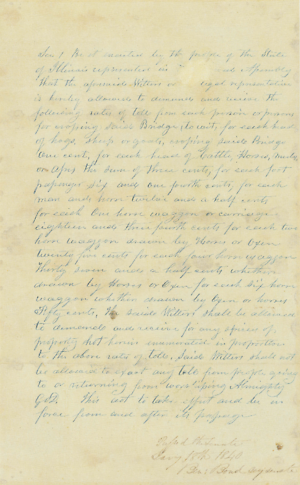 Sec 1 Be it enacted by the people of the State
of Illinois represented in General Assembly
That the aforesaid Witters or legal representatives
is hereby allowed to demand and receive the
following rates of toll from each person or persons
for crossing said Bridge, to wit, for each head
of hogs, Sheep or goats, crossing said Bridge
One cent, for each head of Cattle, Horses, Mules
or Asses the sum of Three cents, for each foot
passenger Six and one fourth cents, for each
man and horse twelve and a half cents
for each One horse waggon or carriage
eighteen and three fourth cents for each two
horse waggon drawn by Horses or Oxen
twenty five cents for each four horse waggon
Thirty Seven and a half cents whether
drawn by Horses or Oxen for each Six horse
waggon whether drawn by Oxen or horses
Fifty cents, The said Witters shall be allowed
to demand and receive for any species of
property not herein enumerated in proportion
to the above rates of tolls, Said Witters shall not
be allowed to exact any toll from people going
to or returning from worshiping Almighty
God. This act to take effect and be in
force from and after its passage